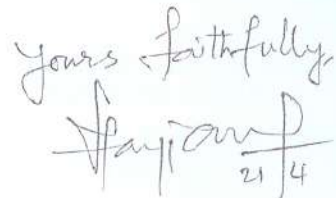 Yours faithfully,
21/4